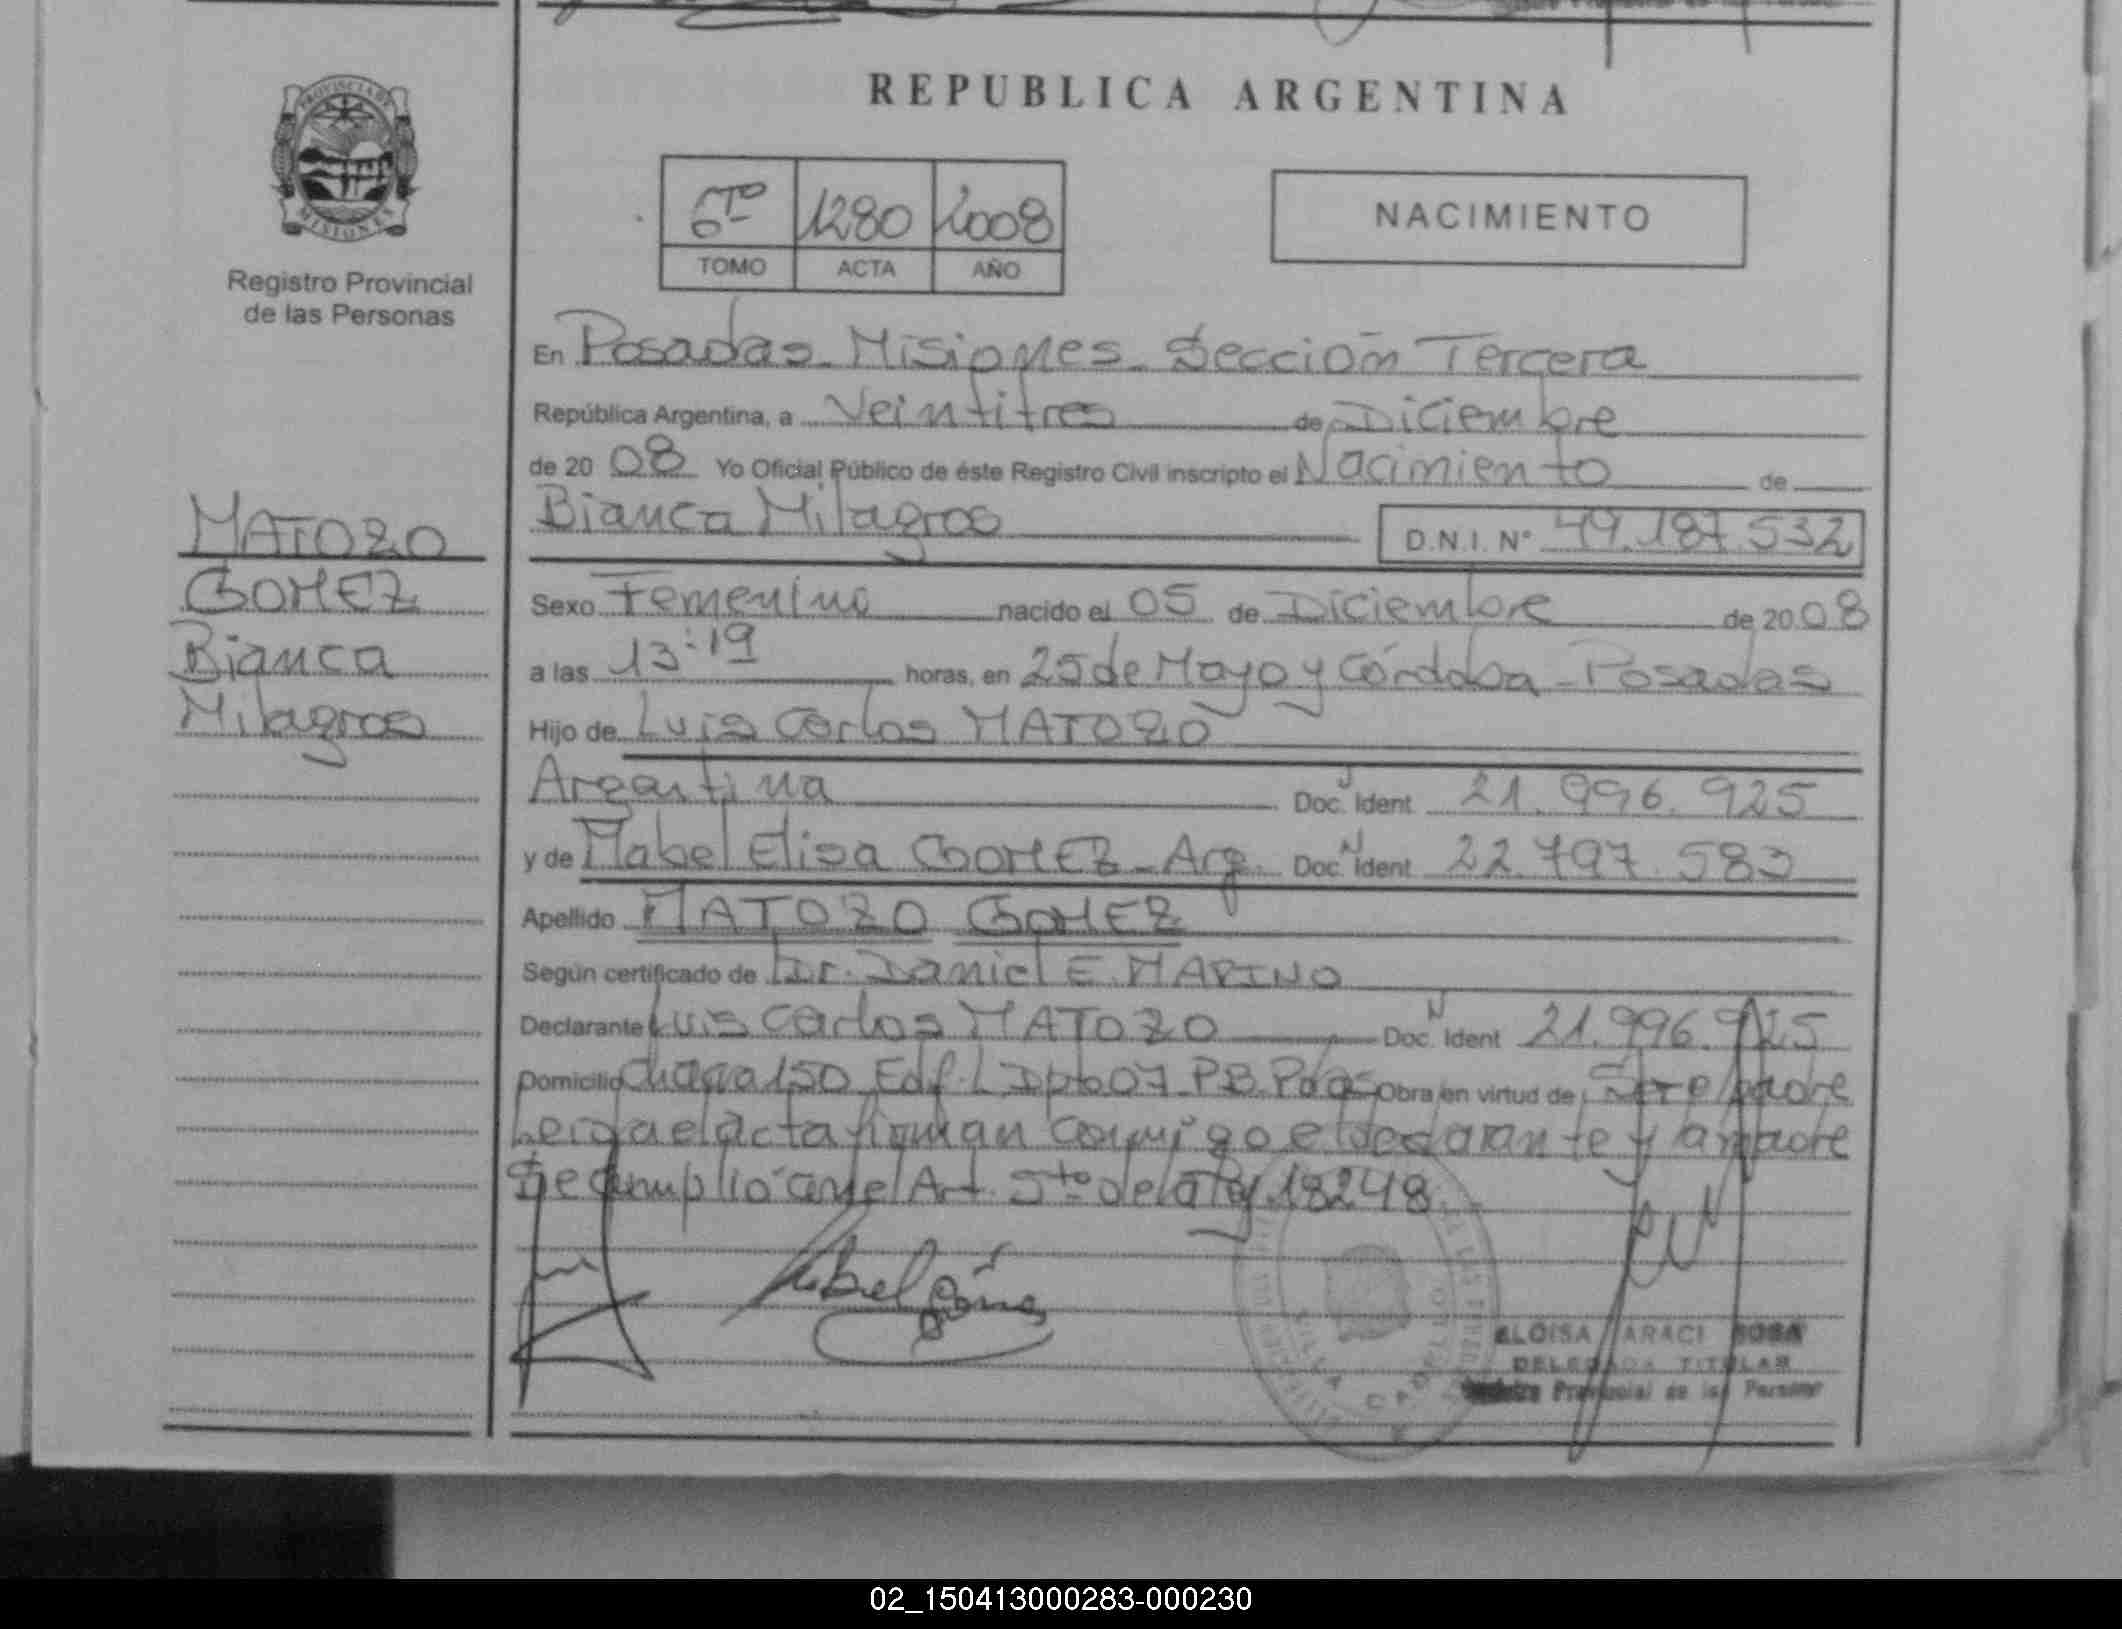 REPUBLICA ARGENTINA
PROVINCIA DE
MISIONES
Registro Provincial
de las Personas
6TO 1280 2008
TOMO ACTA AÑO
NACIMIENTO
En Posadas - Misiones - Sección Tercera
República Argentina, a Veintitres de Diciembre
de 20 08 Yo Oficial Público de éste Registro Civil inscripto el Nacimiento de
Bianca Milagros D.N.I. N° 49.187.532
MATOZO
GOMEZ
Bianca
Milagros
Sexo Femenino nacido el 05 de Diciembre de 20 08
a las 13:19 horas, en 25 de Mayo y Córdoba - Posadas
Hijo de Luis Carlos MATOZO
Argentina Doc. Ident 21.996.925
y de Mabel Elisa GOMEZ - Arg. Doc. Ident 22.797.583
Apellido MATOZO GOMEZ
Según certificado de Dr. Daniel E. MARINO
Declarante Luis Carlos MATOZO Doc. Ident 21.996.925
Domicilio Chacra 150 Edf. L Dpto 07 P.B. Pdas Obra en virtud de Ser el padre
Leida el acta firman conmigo el declarante y la madre
Se cumplió con el Art. 5to de la Ley 18248.
Mabel Gómez
ELOISA ARACI SOSA
DELEGADA TITULAR
Registro Provincial de las Personas
02_150413000283-000230